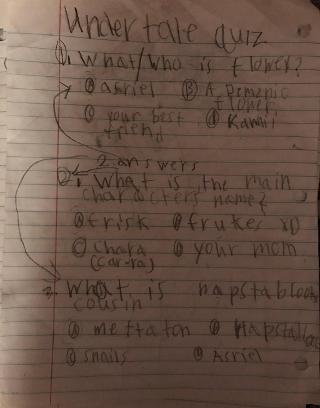 Undertale quiz
1. What/who is flowey?
a asriel B A Demonic
flower
c your best
friend d Kamii
2 answers
2. What is the main
characters name?
a frisk b frukes XD
c Chara d your mom
(car-ra)
3. What is napstablooks
cousin
a mettaton b Napstablook
c snails d Asriel